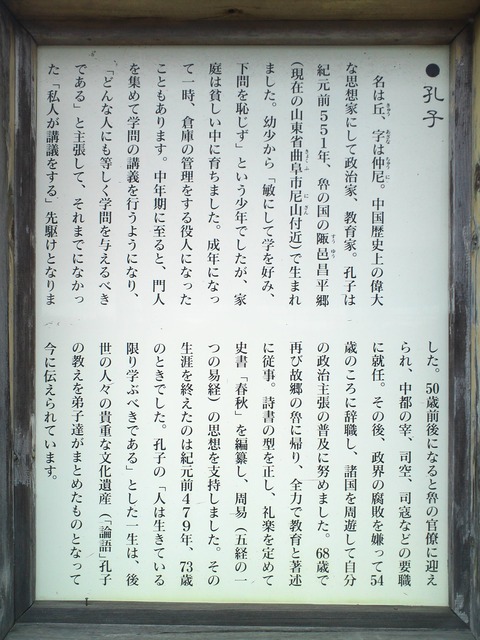 ●孔子
名は丘、字は仲尼。中国歴史上の偉大
な思想家にして政治家、教育家。孔子は
紀元前551年、魯の国の陬邑昌平郷
(現在の山東省曲阜市尼山付近)で生まれ
ました。幼少から「敏にして学を好み、
下問を恥じず」という少年でしたが、家
庭は貧しい中に育ちました。成年になっ
て一時、倉庫の管理をする役人になった
こともあります。中年期に至ると、門人
を集めて学問の講義を行うようになり、
「どんな人にも等しく学問を与えるべき
である」と主張して、それまでになかっ
た「私人が講義をする」先駆けとなりま
した。50歳前後になると魯の官僚に迎え
られ、中都の宰、司空、司寇などの要職
に就任。その後、政界の腐敗を嫌って54
歳のころに辞職し、諸国を周遊して自分
の政治主張の普及に努めました。68歳で
再び故郷の魯に帰り、全力で教育と著述
に従事。詩書の型を正し、礼楽を定めて
史書「春秋」を編纂し、周易(五経の一
つの易経)の思想を支持しました。その
生涯を終えたのは紀元前479年、73歳
のときでした。孔子の「人は生きている
限り学ぶべきである」とした一生は、後
世の人々の貴重な文化遺産(「論語」孔子
の教えを弟子達がまとめたもの)となって
今に伝えられています。